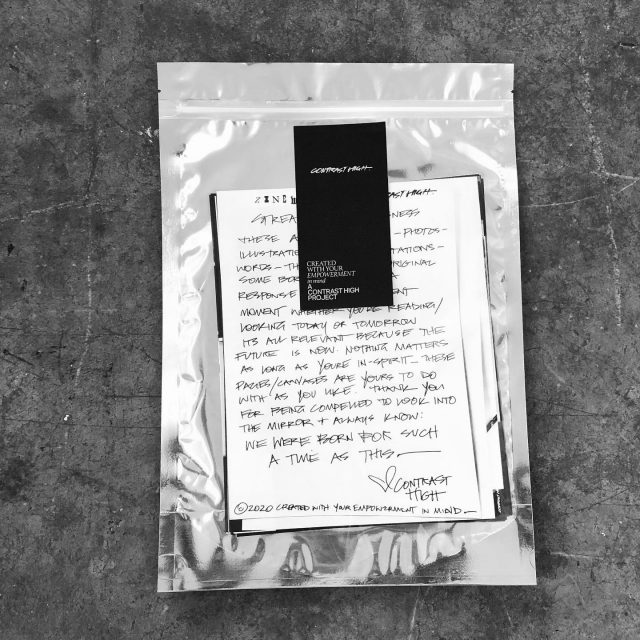 CONTRAST HIGH
CREATED
WITH YOUR
EMPOWERMENT
in mind
A
CONTRAST HIGH
PROJECT
ZINE
STREA NESS
THESE A — PHOTOS —
ILLUSTRATI TATIONS —
WORDS — TH ORIGINAL
SOME BOR A
RESPONSE ENT
MOMENT WHETHER YOU'RE READING/
LOOKING TODAY OR TOMORROW
ITS ALL RELEVANT BECAUSE THE
FUTURE IS NOW. NOTHING MATTERS
AS LONG AS YOU'RE IN-SPIRIT — THESE
PAGES/CANVASES ARE YOURS TO DO
WITH AS YOU LIKE. THANK YOU
FOR BEING COMPELLED TO LOOK INTO
THE MIRROR + ALWAYS KNOW:
WE WERE BORN FOR SUCH
A TIME AS THIS. —
♡ CONTRAST
HIGH
©2020 CREATED WITH YOUR EMPOWERMENT IN MIND. —